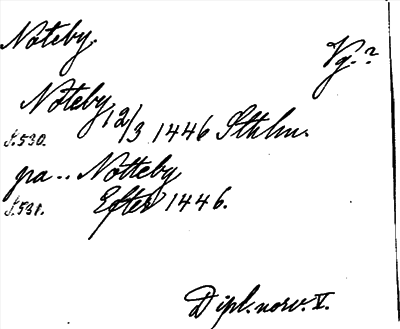 Noteby.
Vg.?
Noteby 12/3 1446 Sthlm.
s. 530.
pa.. Notteby
s. 531. Efter 1446.
Dipl. norv. V.